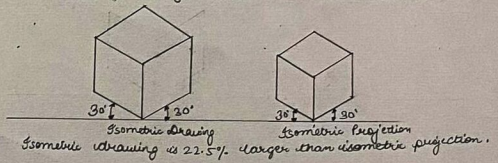 30° 30° 30° 30°
Isometric Drawing Isometric Projection
Isometric drawing is 22.5% larger than isometric projection.